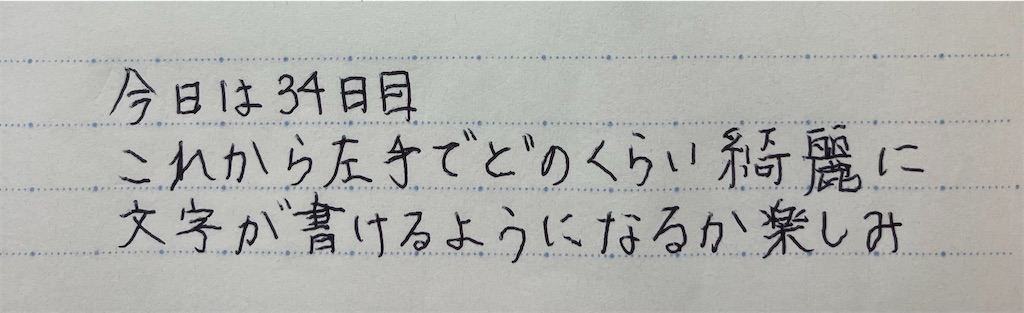 今日は34日目
これから左手でどのくらい綺麗に
文字が書けるようになるか楽しみ